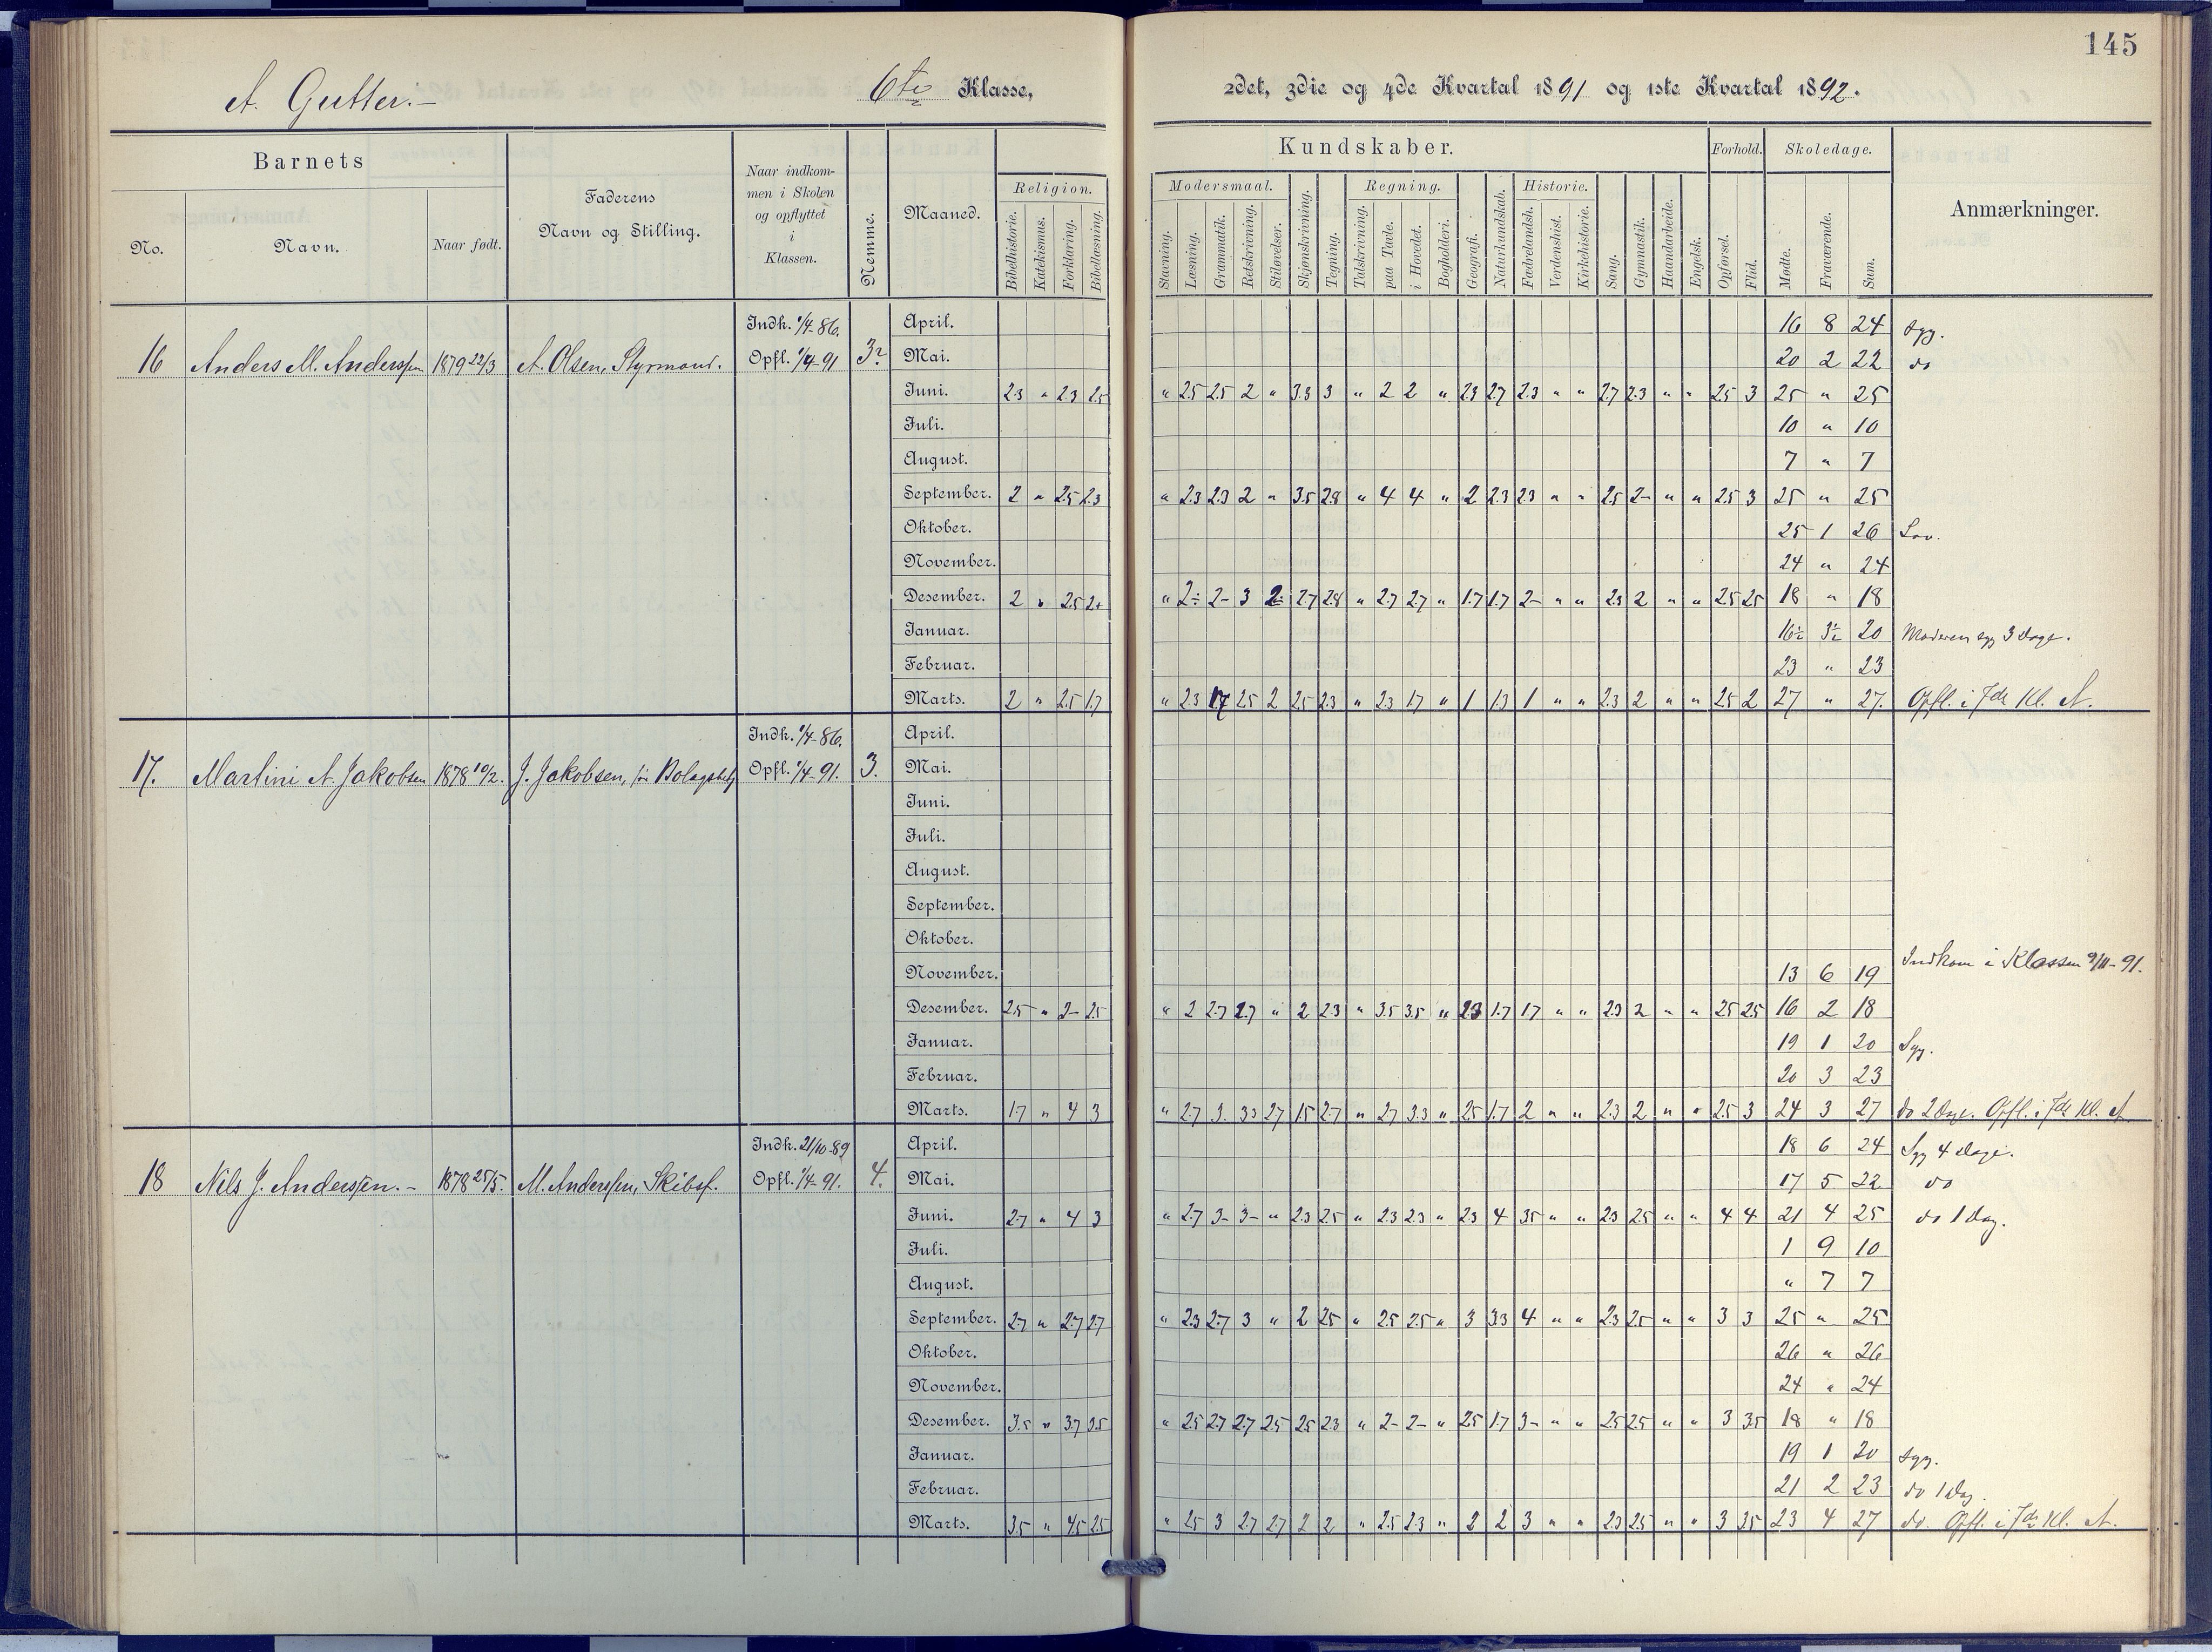 145
A. Gutter.— 6te Klasse, 2det, 3die og 4de Kvartal 1891 og 1ste Kvartal 1892.
Barnets Faderens Navn og Stilling. Naar indkommen i Skolen og opflyttet i Klassen. Nemme. Maaned. Kundskaber. Forhold. Skoledage. Anmærkninger.
No. Navn. Naar født. Religion. Modersmaal. Regning. Historie.
Bibelhistorie. Katekismus. Forklaring. Bibellæsning. Stavning. Læsning. Grammatik. Retskrivning. Stiløvelser. Skjønskrivning. Tegning. Talskrivning. paa Tavle. i Hovedet. Bogholderi. Geografi. Naturkundskab. Fædrelandsh. Verdenshist. Kirkehistorie. Sang. Gymnastik. Haandarbeide. Engelsk. Opførsel. Flid. Mødte. Fraværende. Sum.
Indk. 1/4-86. April. 16 8 24 Syg.
16 Anders M. Anderssen 1879 22/3 A. Olsen, Styrmand. Opfl. 1/4-91 3? Mai. 20 2 22 do
Juni. 2.3 " 2.3 2.5 " 2.5 2.5 2 " 3.3 3 " 2 2 " 2.3 2.7 2.3 " " 2.7 2.3 " " 2.5 3 25 " 25
Juli. 10 " 10
August. 7 " 7
September. 2 " 2.5 2.3 " 2.3 2.3 2 " 3.5 2.8 " 4 4 " 2 2.3 2.3 " " 2.5 2- " " 2.5 3 25 " 25
Oktober. 25 1 26 Lov.
November. 24 " 24
Desember. 2 " 2.5 2+ " 2÷ 2- 3 2÷ 2.7 2.8 " 2.7 2.7 " 1.7 1.7 2- " " 2.3 2 " " 2.5 2.5 18 " 18
Januar. 16½ 3½ 20 Moderen syg 3 dage.
Februar. 23 " 23
Marts. 2 " 2.5 1.7 " 2.3 1.7 2.5 2 2.5 2.3 " 2.3 1.7 " 1 1.3 1 " " 2.3 2 " " 2.5 2 27 " 27. Opfl. i 7de Kl. A.
Indk. 1/4-86. April.
17. Martini A. Jakobsen 1878 10/2. J. Jakobsen, Opfl. 1/4-91. 3. Mai.
Juni.
Juli.
August.
September.
Oktober.
November. 13 6 19 Indkom i Klassen 9/11-91.
Desember. 2.5 " 2- 2.5 " 2 2.7 2.7 " 2 2.3 " 3.5 3.5 " 2.3 1.7 1.7 " " 2.3 2 " " 2.5 2.5 16 2 18
Januar. 19 1 20 Syg.
Februar. 20 3 23
Marts. 1.7 " 4 3 " 2.7 3. 3.3 2.7 1.5 2.7 " 2.7 3.3 " 2.5 1.7 2 " " 2.3 2 " " 2.5 3 24 3 27 do 2 Dage. Opfl. i 7de Kl. A.
Indk. 21/10-89 April. 18 6 24 Syg 4 dage.
18 Nils J. Anderssen.— 1878 25/5. M. Anderssen, Skibsf. Opfl. 1/4-91. 4. Mai. 17 5 22 do
Juni. 2.7 " 4 3 " 2.7 3- 3- " 2.3 2.5 " 2.3 2.3 " 2.3 4 3.5 " " 2.3 2.5 " " 4 4 21 4 25 do 1 Dag.
Juli. 1 9 10
August. " 7 7
September. 2.7 " 2.7 2.7 " 2.3 2.7 3 " 2 2.5 " 2.5 2.5 " 3 3.3 4 " " 2.3 2.5 " " 3 3 25 " 25
Oktober. 26 " 26
November. 24 " 24
Desember. 3.5 " 3.7 3.5 " 2.5 2.7 2.7 2.5 2.5 2.3 " 2- 2- " 2.5 1.7 3- " " 2.5 2.5 " " 3 3.5 18 " 18
Januar. 19 1 20 Syg.
Februar. 21 2 23 do 1 Dag.
Marts. 3.5 " 4.5 2.5 " 2.5 3 2.7 2.7 2 2 " 2.5 2.3 " 2 2 3 " " 2.3 2.5 " " 3 3.5 23 4 27 do. Opfl. i 7de Kl. A.